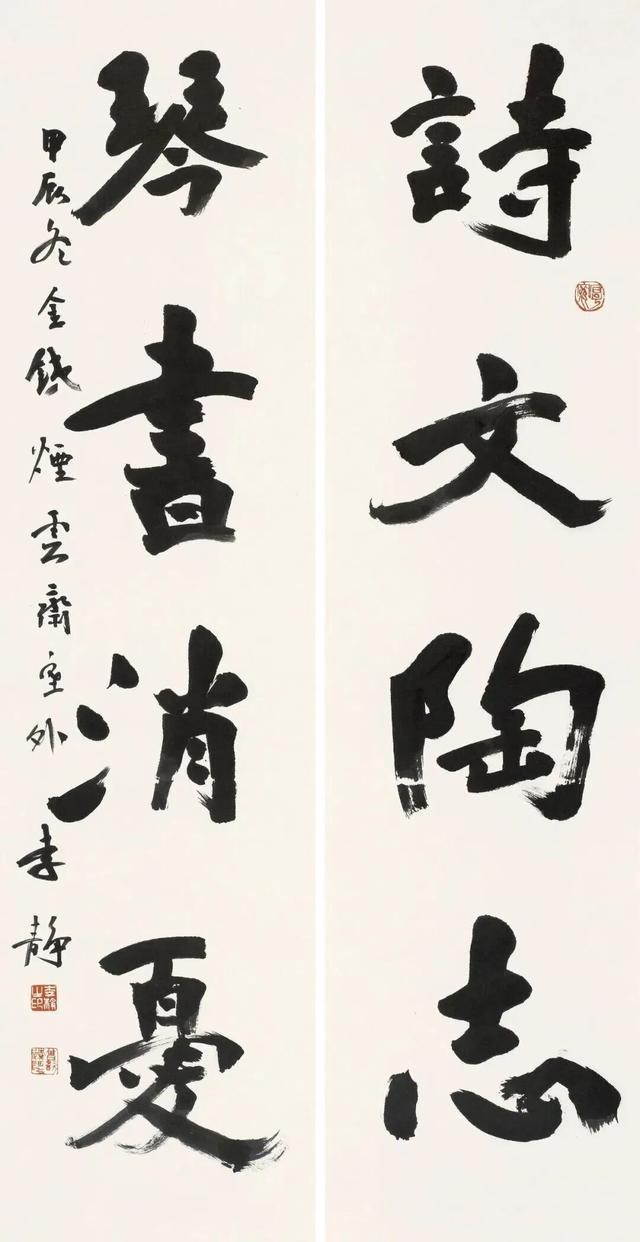 詩文陶志
琴書消憂
甲辰冬金錢煙雲齋室外李靜